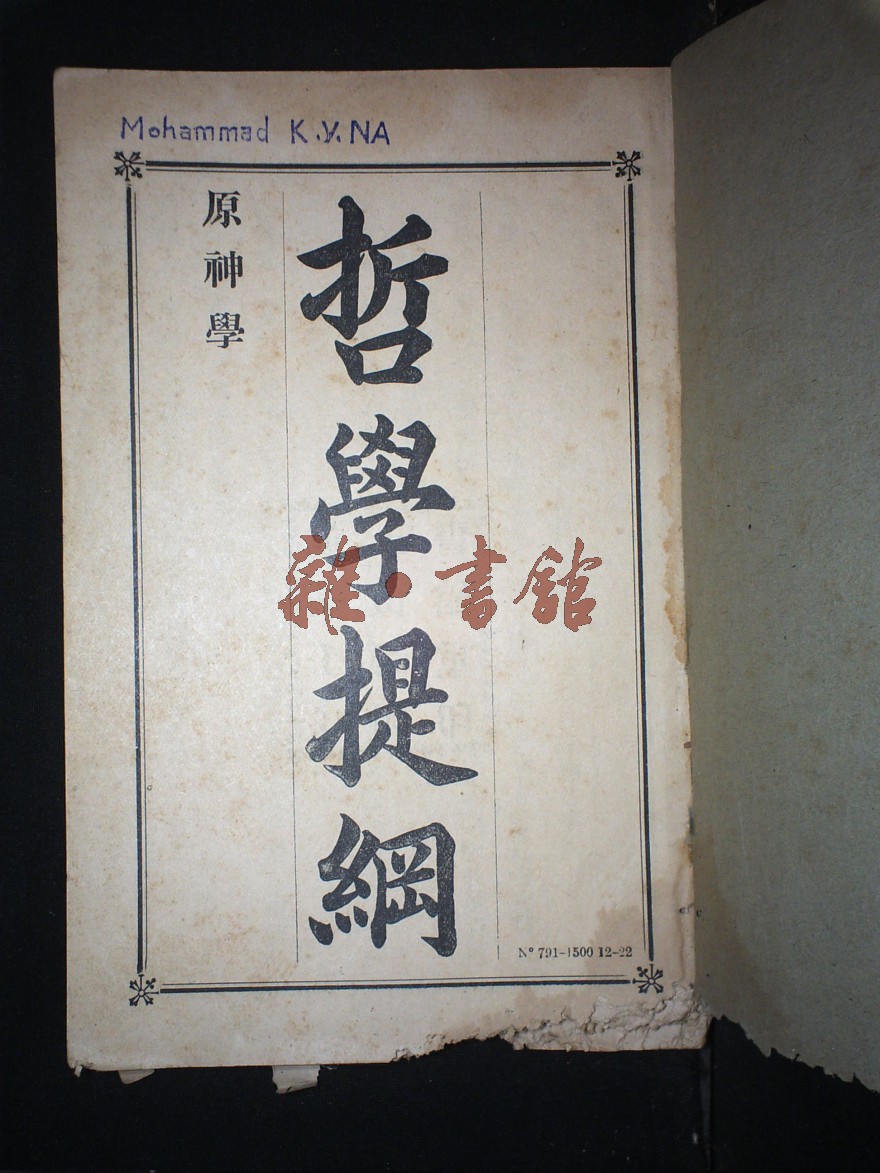 Mohammad K.Y.NA
哲學提綱
原神學
雜·書館
Nº 791-1500 12-22